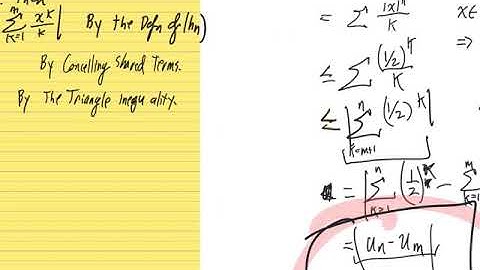 Then
∑_{k=1}^{m} x^k/k | By the Defn of (hn)
By Cancelling Shared Terms.
By The Triangle inequality.
= ∑^n |x|^k/k
x∈
=>
≤ ∑ (1/2)^k/k
≤ |∑_{k=m+1}^{n} (1/2)^k|
= |∑_{k=1}^{n} (1/2)^k - ∑_{k=1}^{m}
= |Un - Um|